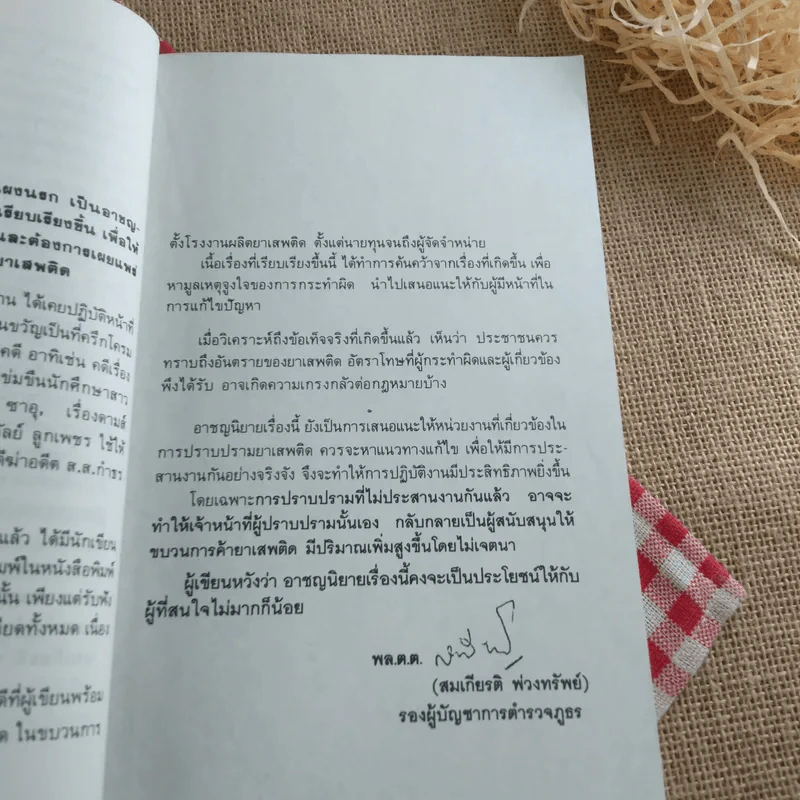 ผงนรก เป็นอาชญ-
เรียบเรียงขึ้น เพื่อให้
และต้องการเผยแพร่
ยาเสพติด
ได้เคยปฏิบัติหน้าที่
ขวัญเป็นที่ครึกโครม
คดี อาทิเช่น คดีเรื่อง
ข่มขืนนักศึกษาสาว
ซาอุ, เรื่องตามล่
ลูกเพชร ใช้ให้
อดีต ส.ส.กำธร
แล้ว ได้มีนักเขียน
พิมพ์ในหนังสือพิมพ์
นั้น เพียงแต่รับฟัง
ทั้งหมด เนื่อง
ที่ผู้เขียนพร้อม
ในขบวนการ
ตั้งโรงงานผลิตยาเสพติด ตั้งแต่นายทุนจนถึงผู้จัดจำหน่าย
เนื้อเรื่องที่เรียบเรียงขึ้นนี้ ได้ทำการค้นคว้าจากเรื่องที่เกิดขึ้น เพื่อ
หามูลเหตุจูงใจของการกระทำผิด นำไปเสนอแนะให้กับผู้มีหน้าที่ใน
การแก้ไขปัญหา
เมื่อวิเคราะห์ถึงข้อเท็จจริงที่เกิดขึ้นแล้ว เห็นว่า ประชาชนควร
ทราบถึงอันตรายของยาเสพติด อัตราโทษที่ผู้กระทำผิดและผู้เกี่ยวข้อง
พึงได้รับ อาจเกิดความเกรงกลัวต่อกฎหมายบ้าง
อาชญนิยายเรื่องนี้ ยังเป็นการเสนอแนะให้หน่วยงานที่เกี่ยวข้องใน
การปราบปรามยาเสพติด ควรจะหาแนวทางแก้ไข เพื่อให้มีการประ-
สานงานกันอย่างจริงจัง จึงจะทำให้การปฏิบัติงานมีประสิทธิภาพยิ่งขึ้น
โดยเฉพาะการปราบปรามที่ไม่ประสานงานกันแล้ว อาจจะ
ทำให้เจ้าหน้าที่ผู้ปราบปรามนั้นเอง กลับกลายเป็นผู้สนับสนุนให้
ขบวนการค้ายาเสพติด มีปริมาณเพิ่มสูงขึ้นโดยไม่เจตนา
ผู้เขียนหวังว่า อาชญนิยายเรื่องนี้คงจะเป็นประโยชน์ให้กับ
ผู้ที่สนใจไม่มากก็น้อย
พล.ต.ต.
(สมเกียรติ พ่วงทรัพย์)
รองผู้บัญชาการตำรวจภูธร